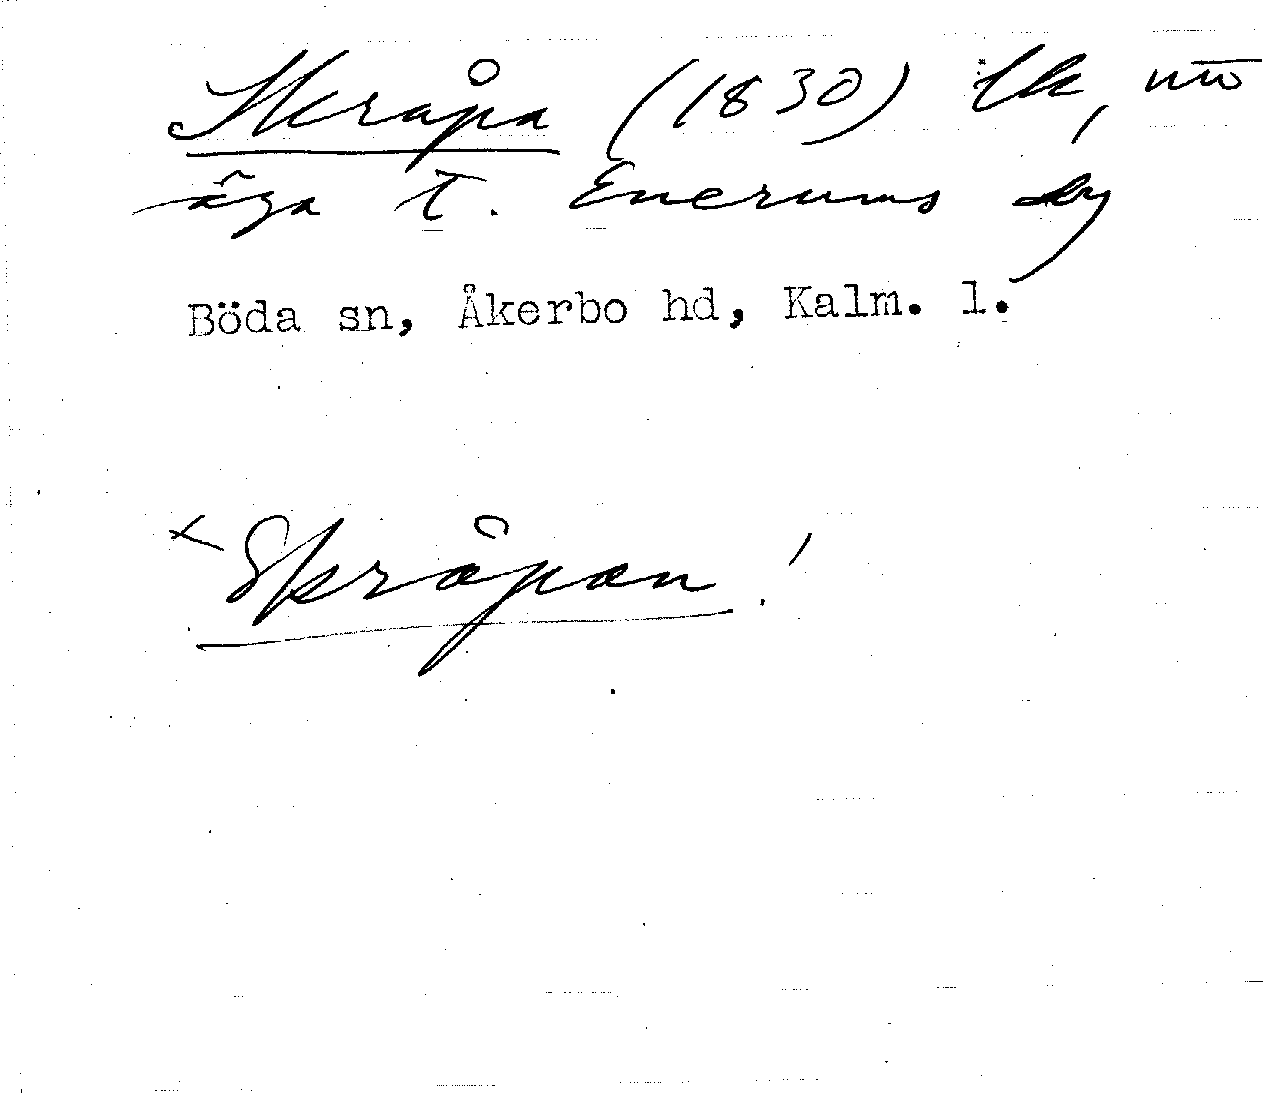 Skråpa (1830) lk, nu
äga t. Enerums by
Böda sn, Åkerbo hd, Kalm. l.
x Skråpan!